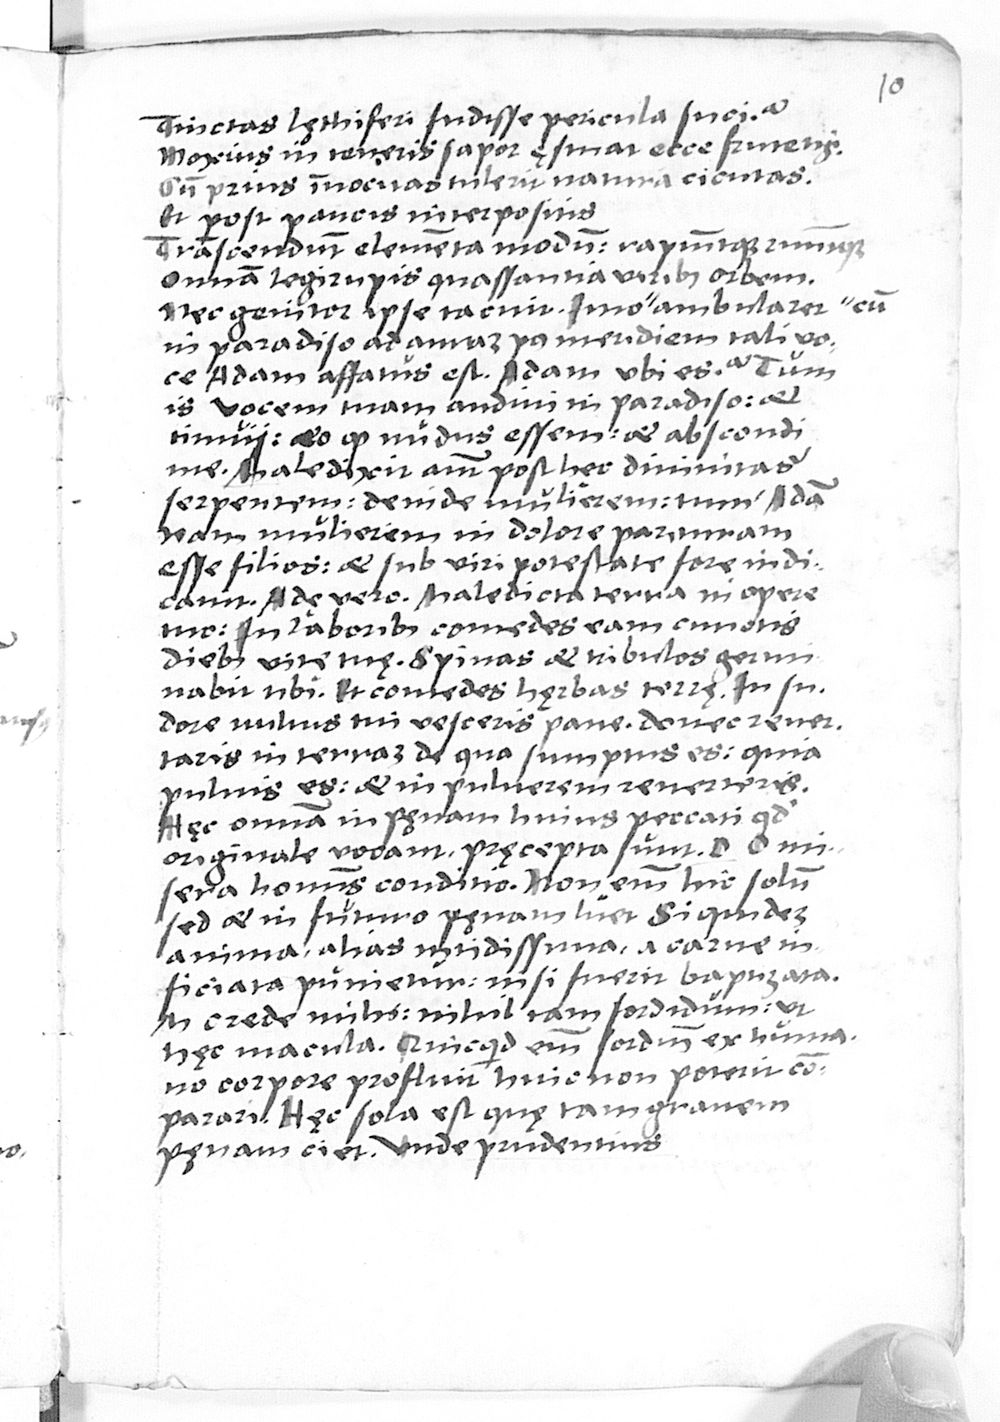 10
Tinctas lęthiferi fudisse pericula suci.
Noxius in teneris sapor ęstuat ecce frutetis.
Cū prius īnocuas tulerit natura cicutas.
Et post paucis interpositis
Trāscendūt elemēta modū: rapiūtq; ruūtq;
Omnā legirupis quassantia virib orbem.
Nec genitor ipse tacuit. Imo " ambularet " cū
in paradiso ad auraz pꝰ meridiem tali vo-
ce Adam affatus est. Adam vbi es. Tum
is vocem tuam audiui in paradiso: &
timuij: &o qp nudus essem: & abscondi
me. Maledixit aut̄ post hec diuinitas
serpentem: deinde mulierem: tum Adā
nam mulierem in dolore parituram
esse filios: & sub viri potestate fore indi-
cauit. Ade vero. Maledicta terra in opere
tuo: In laborib comedes eam cunctis
dieb vite tuę. Spinas & tribulos germi
nabit tibi. Et comedes hęrbas terrę. In su-
dore uultus tui vesceris pane. donec reuer-
taris in terraz de qua sumptus es: quia
puluis es: & in puluerem reuerteris.
Hęc omnā in pęnam huius peccati qd
originale vocant, pręcepta sunt. O mi-
sera homīs conditio. Non em̄ hic solū
sed & in futuro pęnam luet Siquidez
anima, alias nitidissima, a carne in-
ficiata punietur: nisi fuerit baptizata.
M crede mihi: nihil tam sordidum: vt
hęc macula. Quicqd em̄ sordiū ex huma-
no corpore profluit huic non poterit cō-
parari. Hęc sola est quę tam grauem
pęnam ciet. Vnde prudentius